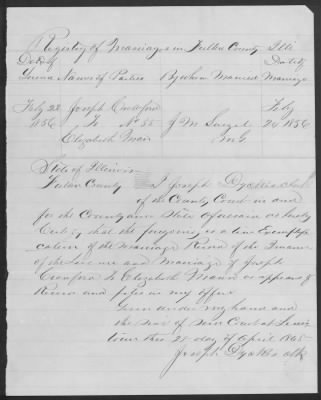 A Registry of Marriages in Fulton County Ills
Date of
License Names of Parties By whom Married Date of Marriage
Feby 22 Joseph Crawford Feby
1856 To No 85 J M 24 1856
Elizabeth Mann M G
State of Illinois
Fulton County I Joseph Dyckes Clerk
of the County Court in and
for the County and State aforesaid do hereby
Certify that the foregoing is a true Exemplifi
cation of the Marriage Record of the Issuance
of the License and Marriage of Joseph
Crawford to Elizabeth Mann as appears of
Record and files in my office
Given under my hand and
the Seal of Said Court at Lewis
town this 27 day of April 1865
Joseph Dyckes Clk